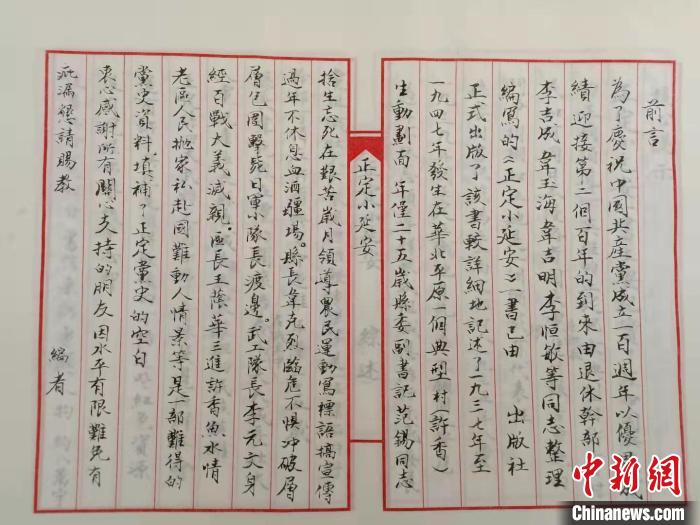 前言
为了慶祝中國共産黨成立一百週年以優異成
績迎接第二個百年的到來由退休幹部
李吉成韋玉海韋吉明李恒敏等同志整理
編寫的《正定小延安》一書已由 出版社
正式出版了該書較詳細地記述了一九三七年至
一九四七年發生在華北平原一個典型村(許香)
生動劃面 年僅二十五歲縣委副書記范錫同志
正定小延安
捨生忘死在艱苦歲月領導農民運動寫標語搞宣傳
過年不休息血洒疆場。縣長韋克烈臨危不惧冲破層
層包圍擊斃日軍小隊長渡邊。武工隊長李元文身
經百戰大義滅親。區長王蔭華三進許香魚水情
老區人民抛家私赴國難動人情景等是一部難得的
黨史資料填補了正定黨史的空白
衷心感謝所有關心支持的朋友因水平有限難免有
疵漏懇請賜教
編者
中新网
Chinanews.com